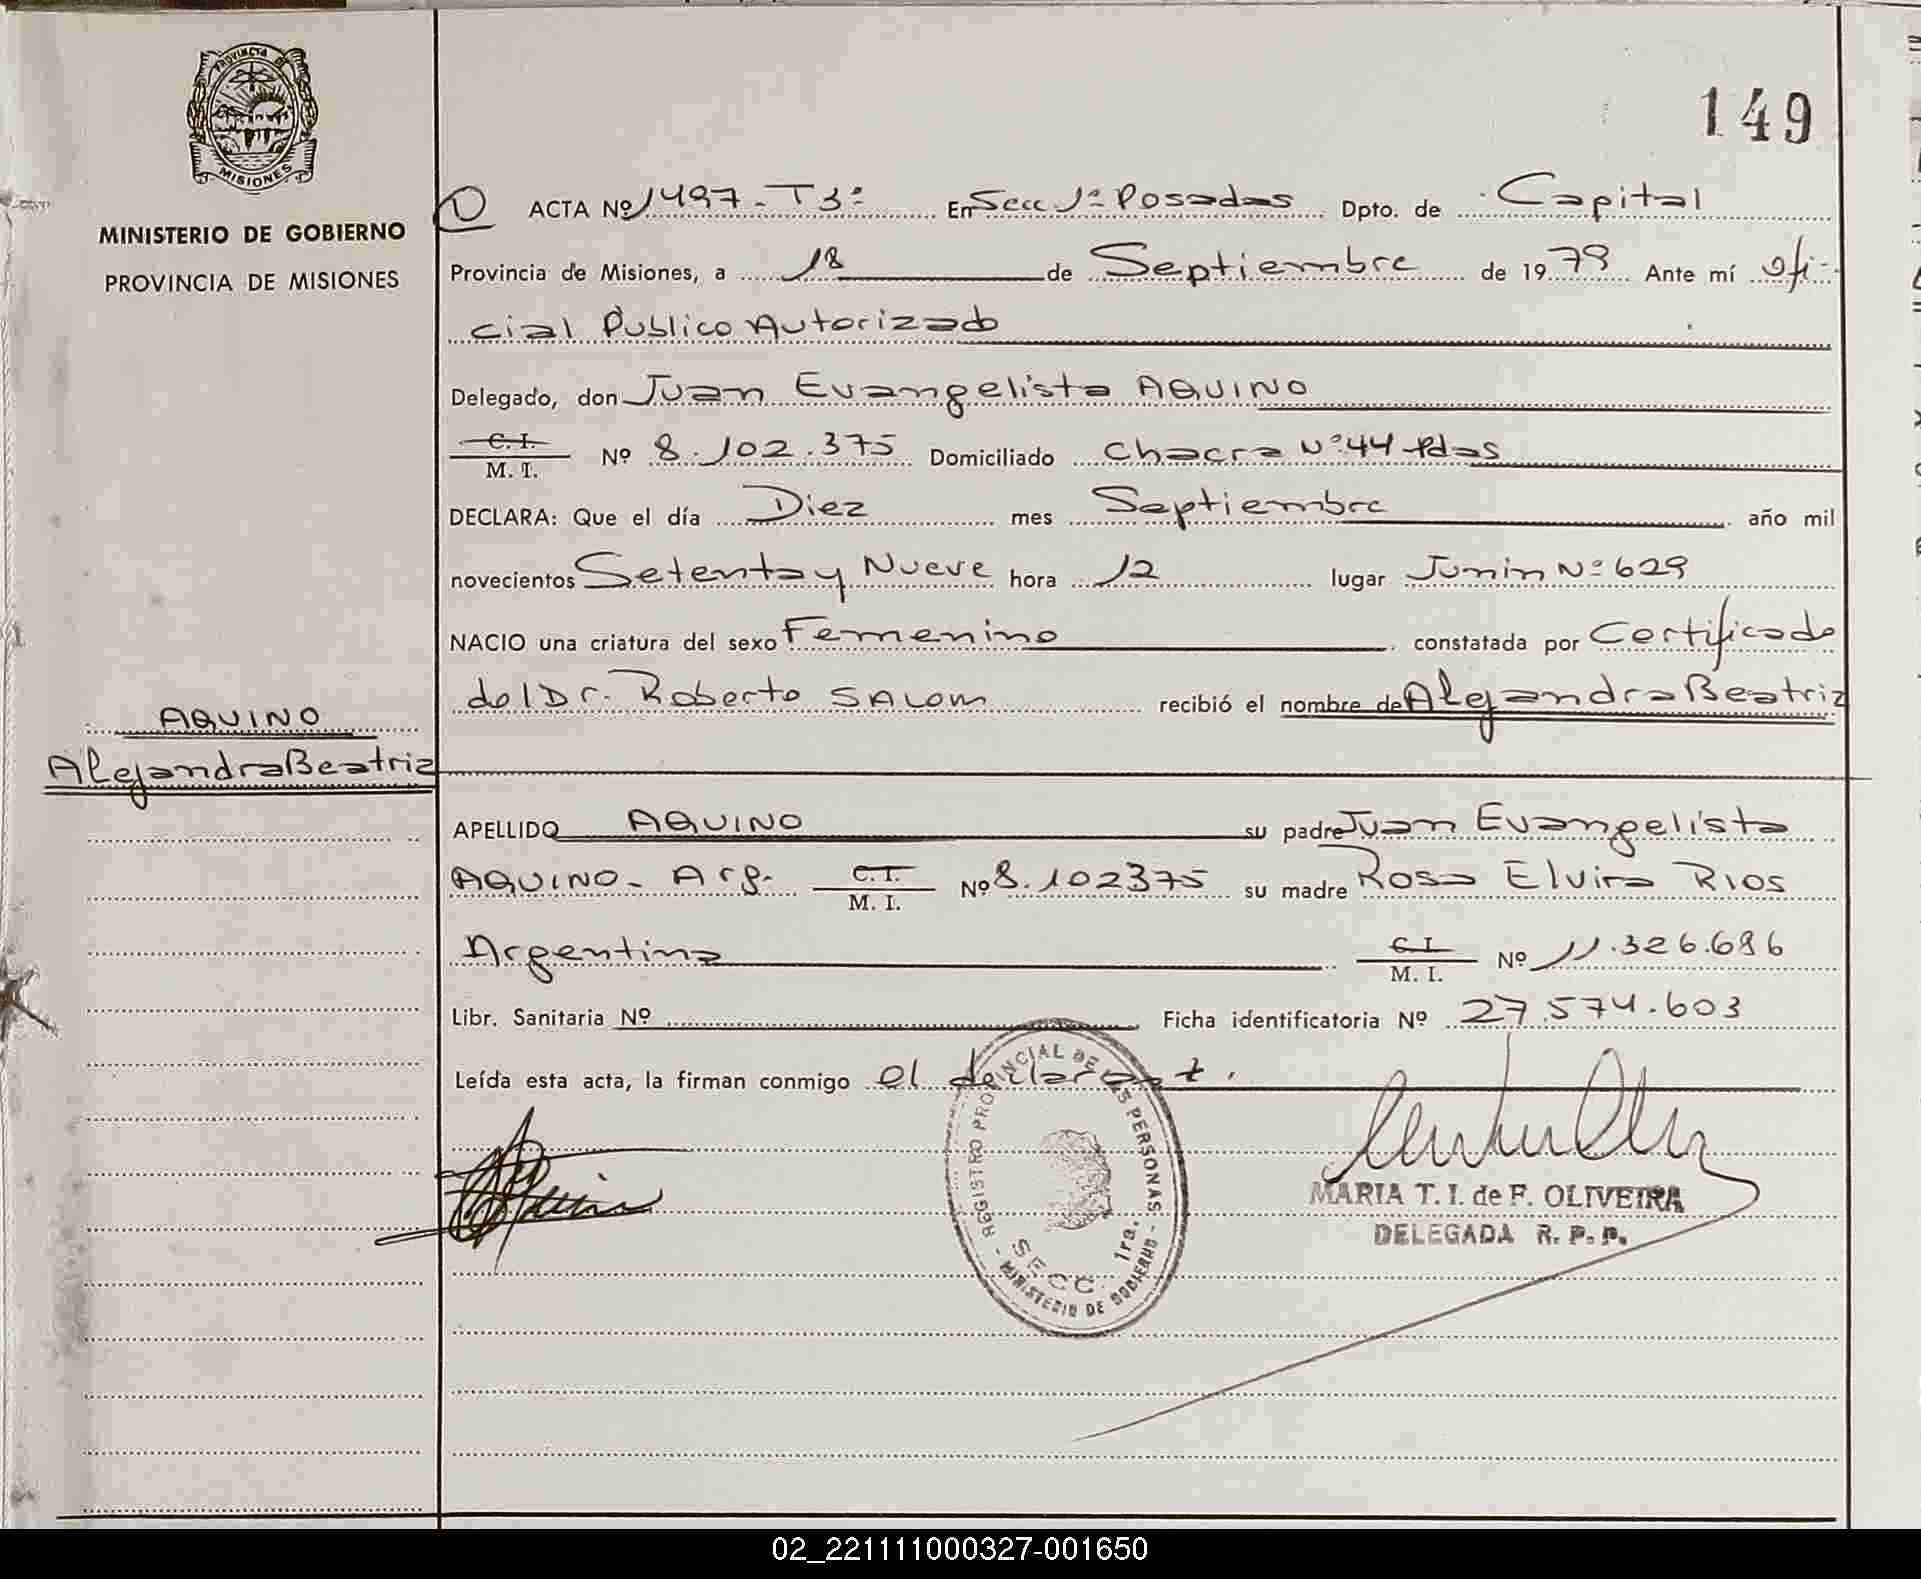 PROVINCIA DE
MISIONES
MINISTERIO DE GOBIERNO
PROVINCIA DE MISIONES
AQUINO
Alejandra Beatriz
149
ACTA Nº 1497 - T 3º En Secc 1ª Posadas Dpto. de Capital
Provincia de Misiones, a 18 de Septiembre de 1979 Ante mí Ofi-
cial Publico Autorizado
Delegado, don Juan Evangelista AQUINO
C. I.
M. I. Nº 8.102.375 Domiciliado Chacra Nº 44 Pdas
DECLARA: Que el día Diez mes Septiembre año mil
novecientos Setenta y Nueve hora 12 lugar Junin Nº 629
NACIO una criatura del sexo Femenino constatada por Certificado
del Dr. Roberto SALOM recibió el nombre de Alejandra Beatriz
APELLIDO AQUINO su padre Juan Evangelista
AQUINO - Arg. C. I.
M. I. Nº 8.102375 su madre Rosa Elvira RIOS
Argentina C. I.
M. I. Nº 11.326.686
Libr. Sanitaria Nº Ficha identificatoria Nº 27.574.603
Leída esta acta, la firman conmigo el declarant.
REGISTRO PROVINCIAL DE LAS PERSONAS - MINISTERIO DE GOBIERNO -
SECC. 1ra.
MARIA T. I. de F. OLIVEIRA
DELEGADA R. P. P.
02_221111000327-001650